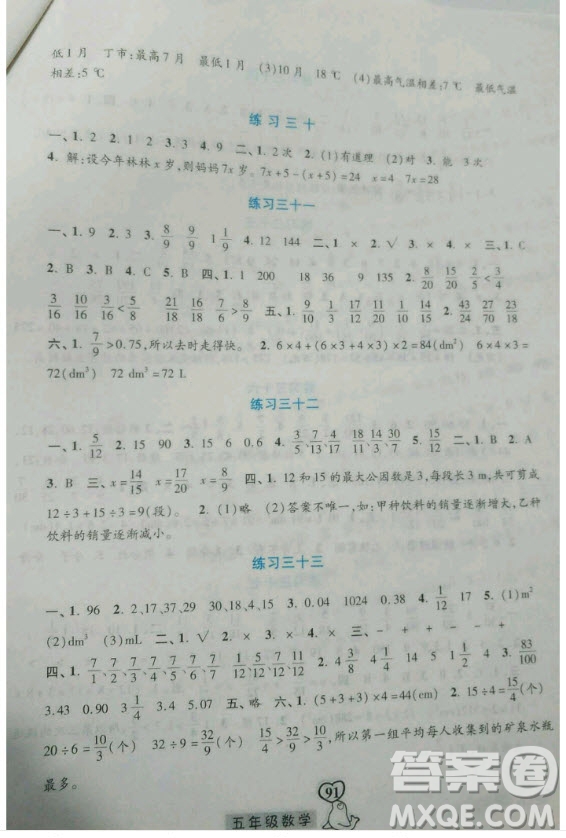 低1月 丁市:最高7月 最低1月 (3)10月 18℃ (4)最高气温相差:7℃ 最低气温
相差:5℃
练习三十
一、1. 2 2. 1 2 3. 3 4. 9 二、1. 2次 2. (1)有道理 (2)对 3. 能 3次
4. 解:设今年林林x岁,则妈妈7x岁。7x+5-(x+5)=24 x=4 7x=28
练习三十一
一、1. 9 2. 3 3. 8/9 1 1/9 4. 12 144 二、1. × 2. √ 3. × 4. × 三、1. C
2. B 3. B 4. B 四、1. 1 200 18 36 9 135 2. 8/20 15/20 5/20<4/5
3/16 10/16 3/16<5/8 21/18 16/18 7/6>8/9 五、1. 9/10 1/10 3/17 14/17 2. 43/20 27/70 24/23 70/18
六、1. 7/9>0.75,所以去时走得快。 2. 6×4+(6×3+4×3)×2=84(dm²) 6×4×3=
72(dm³) 72 dm³=72 L
练习三十二
一、1. 5/12 2. 15 90 3. 15 6 0.6 4. 3/5、7/12、14/17、18/35、30/13、7/15 二、1. B 2. A
3. B 三、x=14/15 x=17/20 x=8/9 四、1. 12和15的最大公因数是3,每段长3 m,共可剪成
12÷3+15÷3=9(段)。 2. (1)略 (2)答案不唯一,如:甲种饮料的销量逐渐增大,乙种
饮料的销量逐渐减小。
练习三十三
一、1. 96 2. 2,17,37,29 30,18,4,15 3. 0.04 1024 0.38 4. 1/12 5. (1)m²
(2)dm³ (3)mL 二、1. √ 2. × 3. × 4. × 三、- - + - +
3.43 0.90 3 1/4 3.4 5.07 五、略 六、1. (5+3+3)×4=44(cm) 2. 15÷4=15/4(个)
20÷6=10/3(个) 32÷9=32/9(个) 15/4>32/9>10/3,所以第一组平均每人收集到的矿泉水瓶
最多。
91
五年级数学
答案圈
MXQE.COM